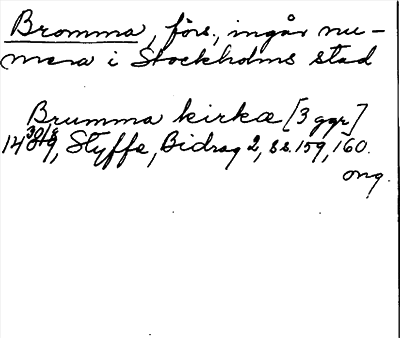 Bromma, förs., ingår nu-
mera i Stockholms stad
Brumma kirkæ [3 ggr]
Styffe, Bidrag 2, ss. 159, 160.
orig.